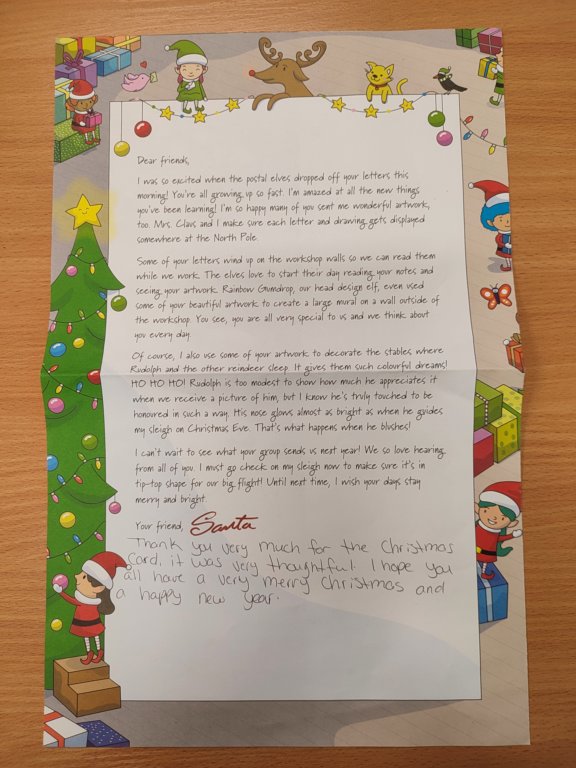 Dear friends,
I was so excited when the postal elves dropped off your letters this
morning! You're all growing up so fast. I'm amazed at all the new things
you've been learning! I'm so happy many of you sent me wonderful artwork,
too. Mrs. Claus and I make sure each letter and drawing gets displayed
somewhere at the North Pole.
Some of your letters wind up on the workshop walls so we can read them
while we work. The elves love to start their day reading your notes and
seeing your artwork. Rainbow Gumdrop, our head design elf, even used
some of your beautiful artwork to create a large mural on a wall outside of
the workshop. You see, you are all very special to us and we think about
you every day.
Of course, I also use some of your artwork to decorate the stables where
Rudolph and the other reindeer sleep. It gives them such colourful dreams!
HO HO HO! Rudolph is too modest to show how much he appreciates it
when we receive a picture of him, but I know he's truly touched to be
honoured in such a way. His nose glows almost as bright as when he guides
my sleigh on Christmas Eve. That's what happens when he blushes!
I can't wait to see what your group sends us next year! We so love hearing
from all of you. I must go check on my sleigh now to make sure it's in
tip-top shape for our big flight! Until next time, I wish your days stay
merry and bright.
Your friend, Santa
Thank you very much for the Christmas
Card, it was very thoughtful. I hope you
all have a very merry Christmas and
a happy new year.